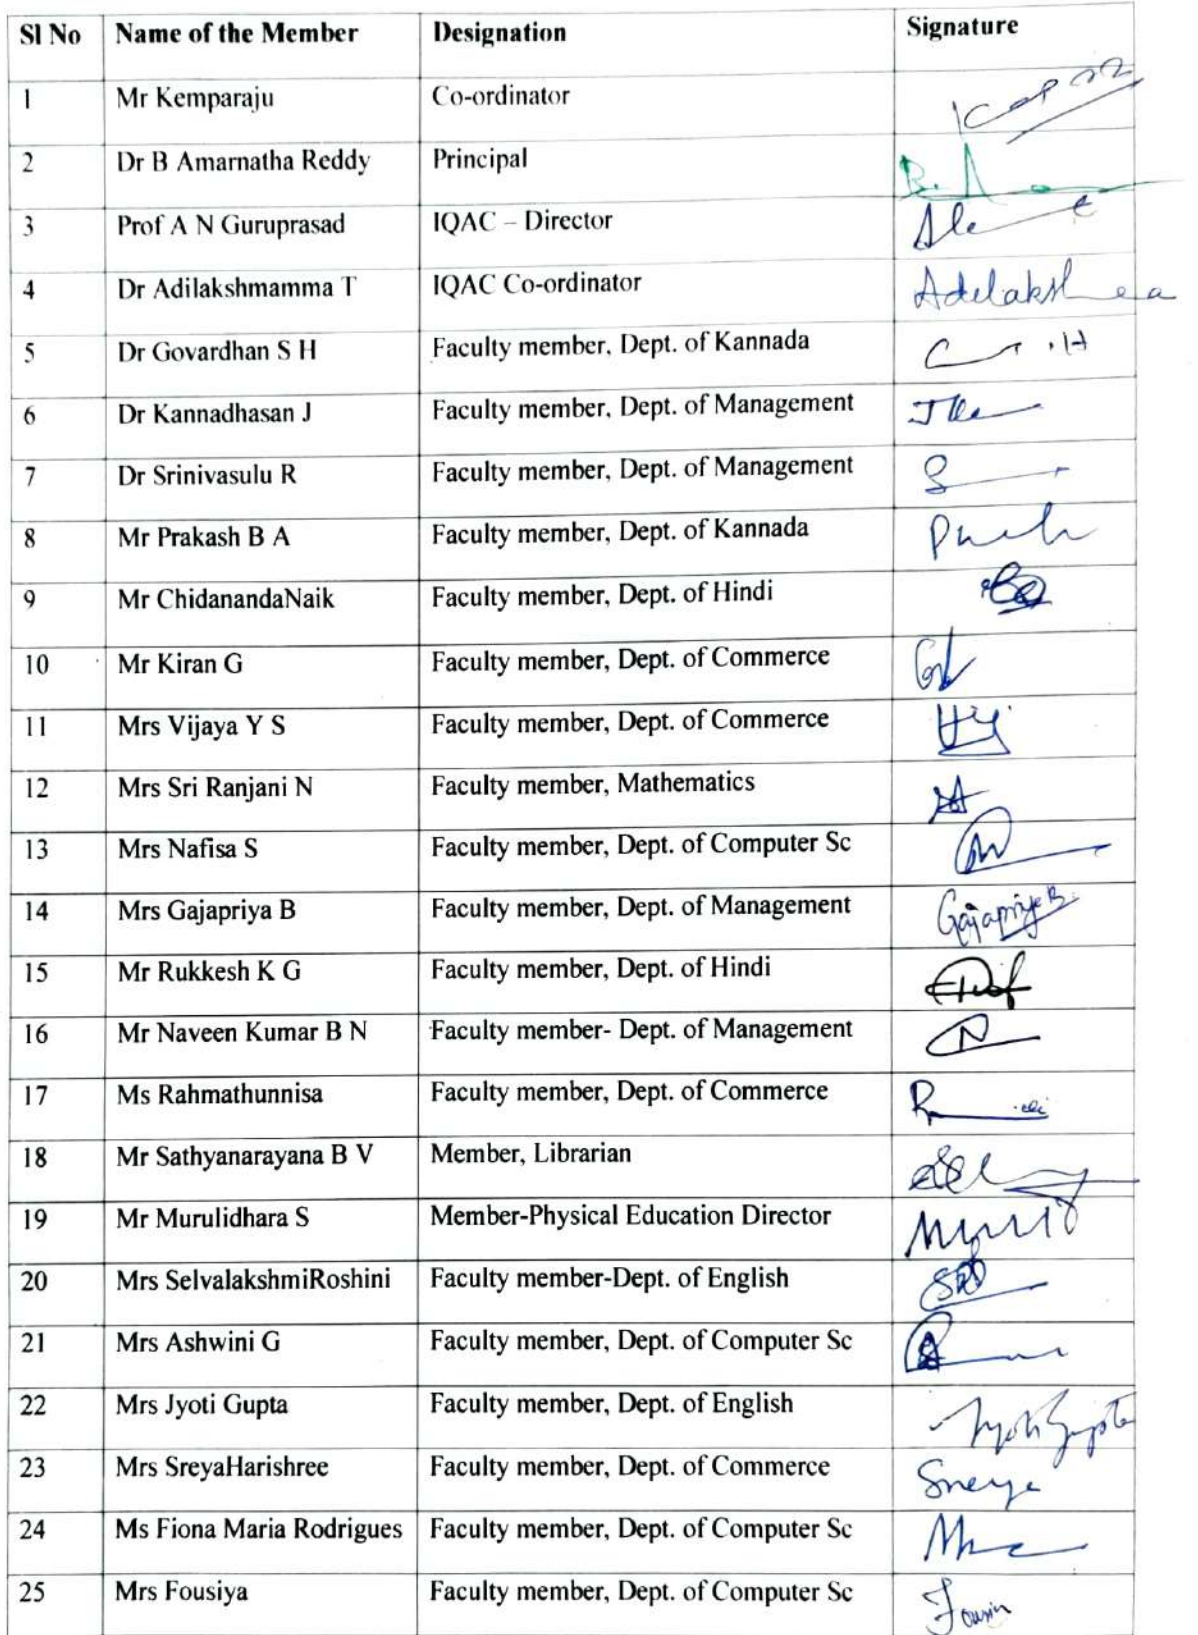 Sl No Name of the Member Designation Signature
1 Mr Kemparaju Co-ordinator
2 Dr B Amarnatha Reddy Principal
3 Prof A N Guruprasad IQAC – Director
4 Dr Adilakshmamma T IQAC Co-ordinator
5 Dr Govardhan S H Faculty member, Dept. of Kannada
6 Dr Kannadhasan J Faculty member, Dept. of Management
7 Dr Srinivasulu R Faculty member, Dept. of Management
8 Mr Prakash B A Faculty member, Dept. of Kannada
9 Mr ChidanandaNaik Faculty member, Dept. of Hindi
10 Mr Kiran G Faculty member, Dept. of Commerce
11 Mrs Vijaya Y S Faculty member, Dept. of Commerce
12 Mrs Sri Ranjani N Faculty member, Mathematics
13 Mrs Nafisa S Faculty member, Dept. of Computer Sc
14 Mrs Gajapriya B Faculty member, Dept. of Management Gajapriya B.
15 Mr Rukkesh K G Faculty member, Dept. of Hindi
16 Mr Naveen Kumar B N Faculty member- Dept. of Management
17 Ms Rahmathunnisa Faculty member, Dept. of Commerce
18 Mr Sathyanarayana B V Member, Librarian
19 Mr Murulidhara S Member-Physical Education Director
20 Mrs SelvalakshmiRoshini Faculty member-Dept. of English
21 Mrs Ashwini G Faculty member, Dept. of Computer Sc
22 Mrs Jyoti Gupta Faculty member, Dept. of English Jyoti Gupta
23 Mrs SreyaHarishree Faculty member, Dept. of Commerce Sreya
24 Ms Fiona Maria Rodrigues Faculty member, Dept. of Computer Sc
25 Mrs Fousiya Faculty member, Dept. of Computer Sc